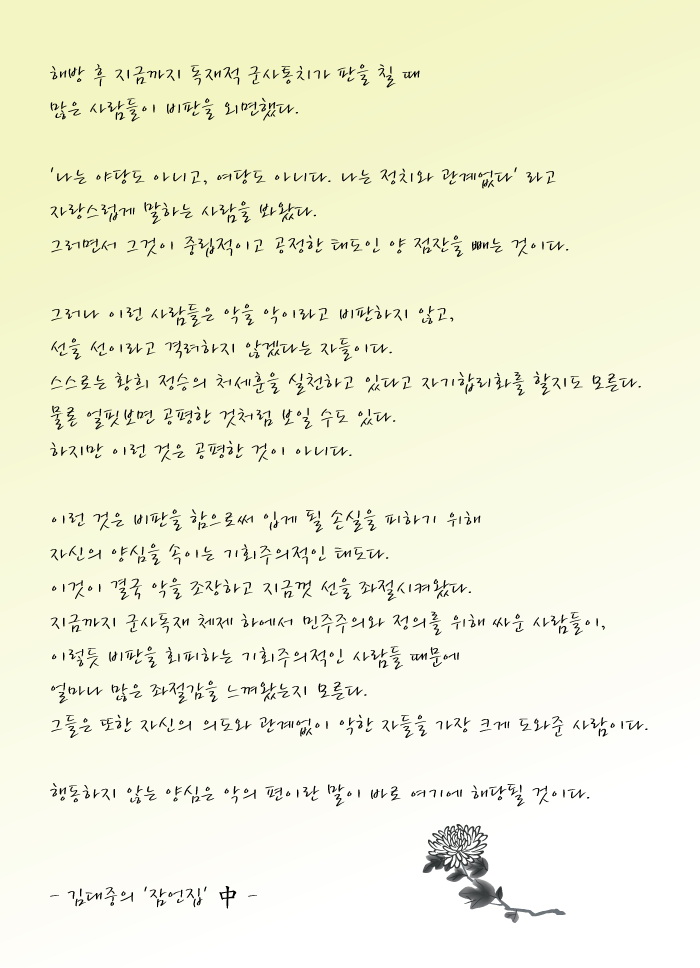 해방 후 지금까지 독재적 군사통치가 판을 칠 때
많은 사람들이 비판을 외면했다.
'나는 야당도 아니고, 여당도 아니다. 나는 정치와 관계없다' 라고
자랑스럽게 말하는 사람을 봐왔다.
그러면서 그것이 중립적이고 공정한 태도인 양 점잔을 빼는 것이다.
그러나 이런 사람들은 악을 악이라고 비판하지 않고,
선을 선이라고 격려하지 않겠다는 자들이다.
스스로는 황희 정승의 처세훈을 실천하고 있다고 자기합리화를 할지도 모른다.
물론 얼핏보면 공평한 것처럼 보일 수도 있다.
하지만 이런 것은 공평한 것이 아니다.
이런 것은 비판을 함으로써 입게 될 손실을 피하기 위해
자신의 양심을 속이는 기회주의적인 태도다.
이것이 결국 악을 조장하고 지금껏 선을 좌절시켜왔다.
지금까지 군사독재 체제 하에서 민주주의와 정의를 위해 싸운 사람들이,
이렇듯 비판을 회피하는 기회주의적인 사람들 때문에
얼마나 많은 좌절감을 느껴왔는지 모른다.
그들은 또한 자신의 의도와 관계없이 악한 자들을 가장 크게 도와준 사람이다.
행동하지 않는 양심은 악의 편이란 말이 바로 여기에 해당될 것이다.
- 김대중의 '잠언집' 中 -